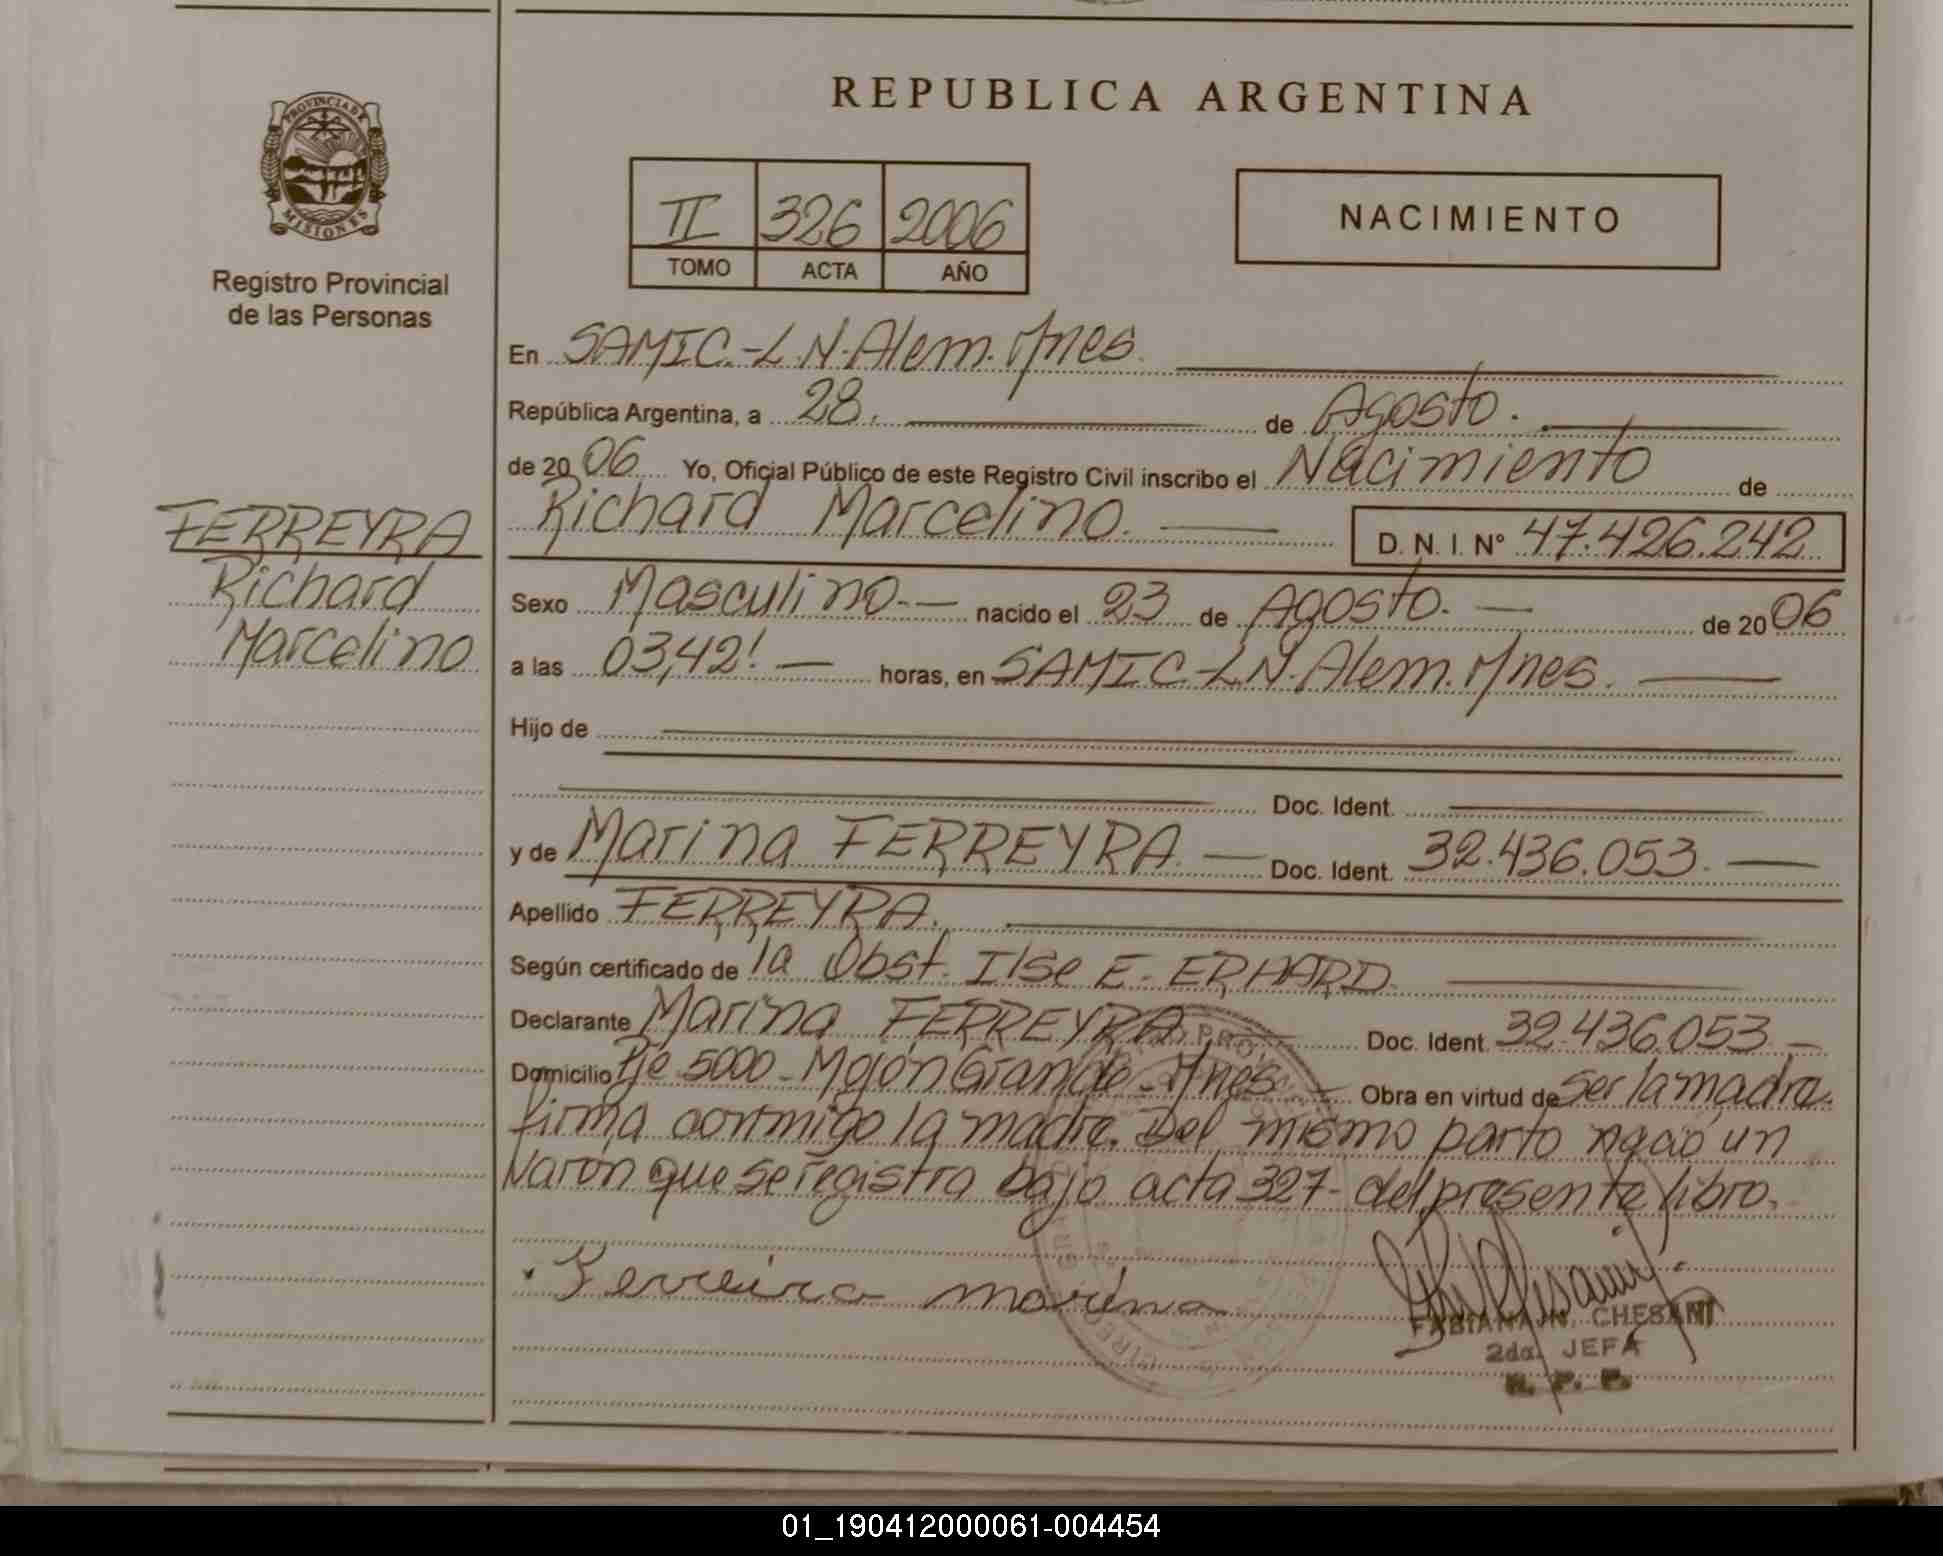 REPUBLICA ARGENTINA
PROVINCIA DE
MISIONES
Registro Provincial
de las Personas
II 326 2006
TOMO ACTA AÑO
NACIMIENTO
En SAMIC.-L.N.Alem.Mnes.
República Argentina, a 28. de Agosto.
de 2006 Yo, Oficial Público de este Registro Civil inscribo el Nacimiento de
Richard Marcelino. D. N. I. Nº 47.426.242
FERREYRA
Richard
Marcelino
Sexo Masculino.- nacido el 23 de Agosto. de 2006
a las 03,42! horas, en SAMIC-L.N.Alem.Mnes.
Hijo de
Doc. Ident.
y de Marina FERREYRA. Doc. Ident. 32.436.053.
Apellido FERREYRA.
Según certificado de la Obst. Ilse E. ERHARD.
Declarante Marina FERREYRA Doc. Ident. 32.436.053
Domicilio Pje 5000 - Mojón Grande - Mnes Obra en virtud de ser la madre.
firma conmigo la madre. Del mismo parto nació un
varón que se registra bajo acta 327- del presente libro.
Ferreira marina
FABIANA N. CHESANI
2da. JEFA
R. P. P.
01_190412000061-004454